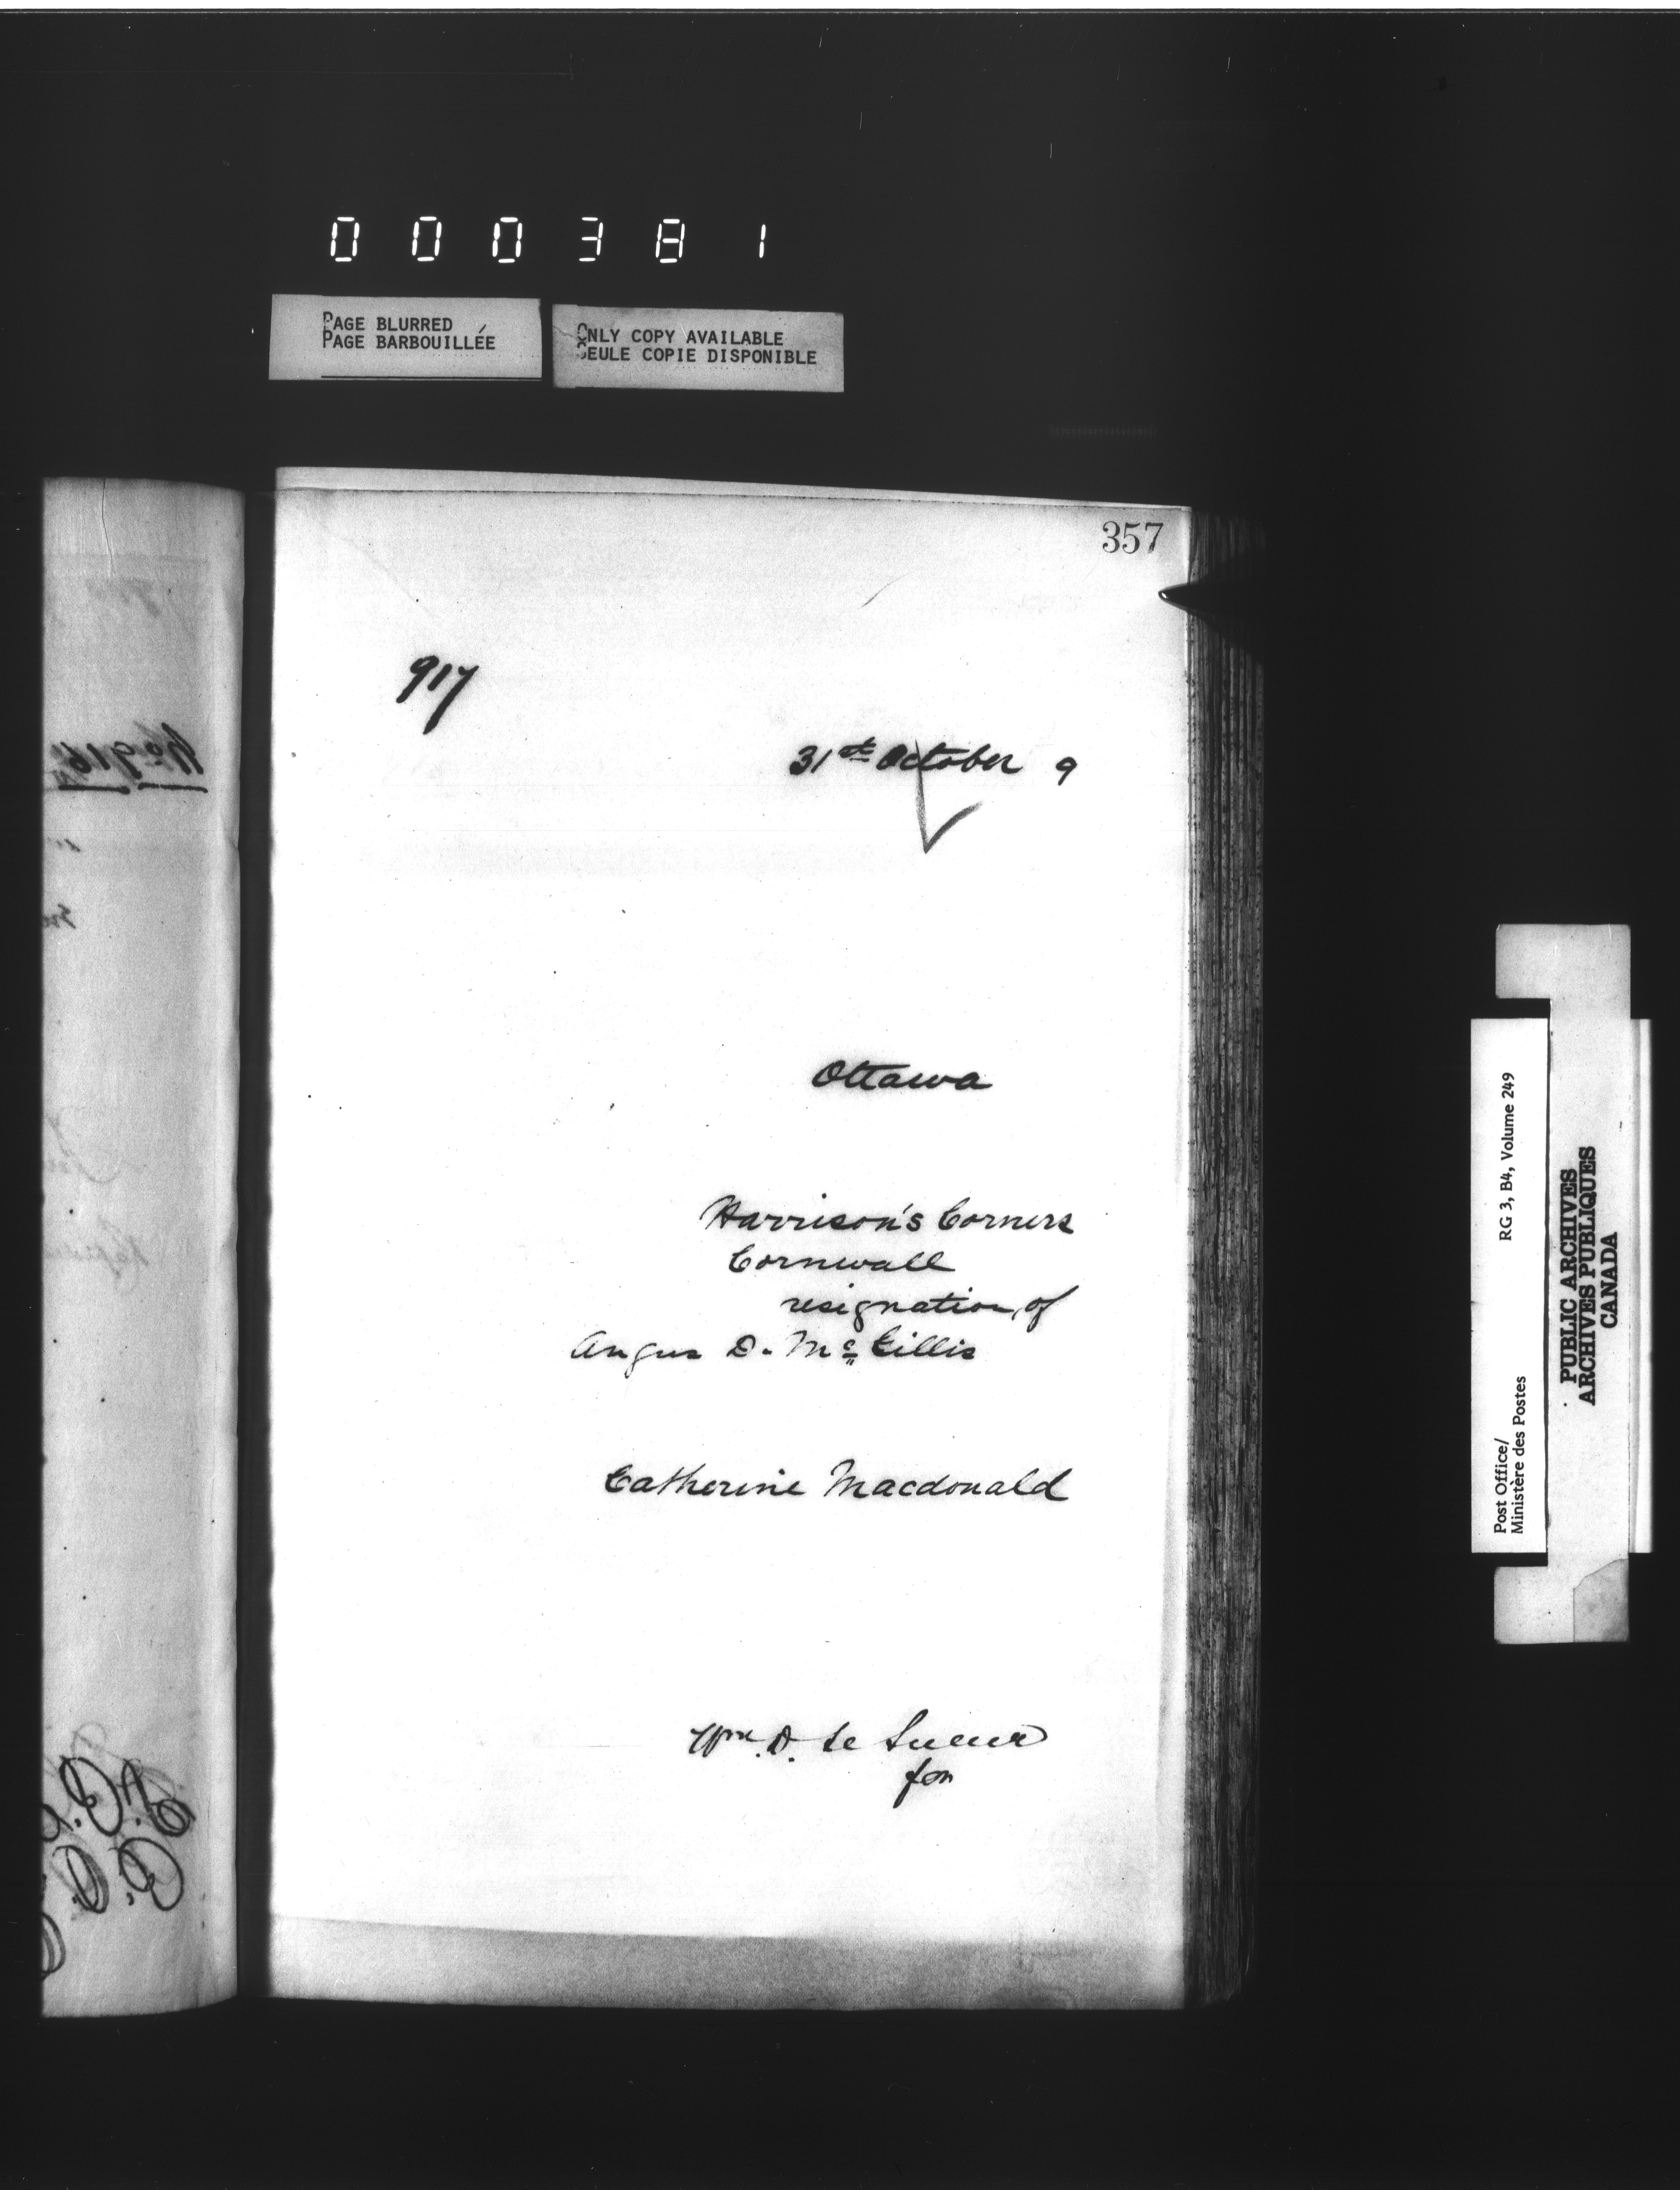 000381
PAGE BLURRED
PAGE BARBOUILLÉE
ONLY COPY AVAILABLE
SEULE COPIE DISPONIBLE
357
No 916
917
31st October 9
Ottawa
Harrison's Corners
Cornwall
resignation of
Angus D. Mc Gillis
Catherine Macdonald
Wm. D. Le Sueur
for
Post Office/
Ministère des Postes
RG 3, B4, Volume 249
PUBLIC ARCHIVES
ARCHIVES PUBLIQUES
CANADA